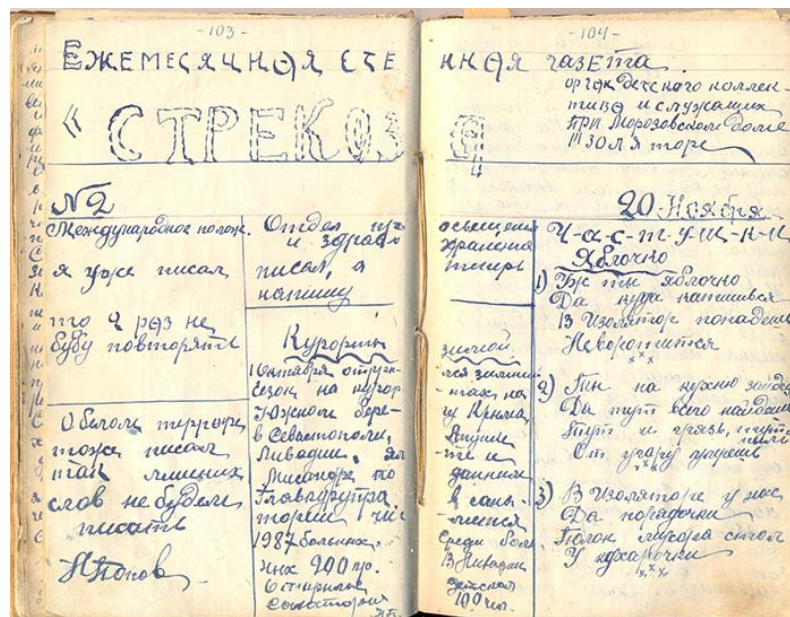 -103-
ЕЖЕМЕСЯЧНАЯ СТЕ
« СТРЕКОЗ
№2
Международное полож.
я уже писал
то 2 раз не
буду повторять
О белом терроре
тоже писал
так лишних
слов не будем
писать
Н Попов
Отдел пр
и здраво
писал, а
напишу
Курорты
1 Октября откры-
сезон на курор
Южном бере-
в Севастополи,
Ливадии,
Мисхоре по
Главкурупра
1987 больных,
них 200 пр.
Открылся
санатория
Н.П.
-104-
ННАЯ ГАЗЕТА.
орган детского коллек-
тива и служащих
при Морозовском доме
изоляторе
А
20 Ноября
освещения
хранения
теперь
зимой.
лся зимний
-тах, на
гу Крыма,
Алупке
-те и
данным
в сана-
-лится
среди боль
В Ливадии
детская
100 чел.
Ч-а-с-т-у-ш-к-и
Яблочко
1) Эх ты яблочко
Да куда катишься
В Изолятор попадешь
Не воротишься
x x x
2) Ты на кухню зайдеш
Да тут всего найдешь
Тут и грязь, тут и пыль
От угару умрешь
x x x
3) В Изоляторе у нас
Да порядочки
Полон мусора стол
У кухарочки
x x x